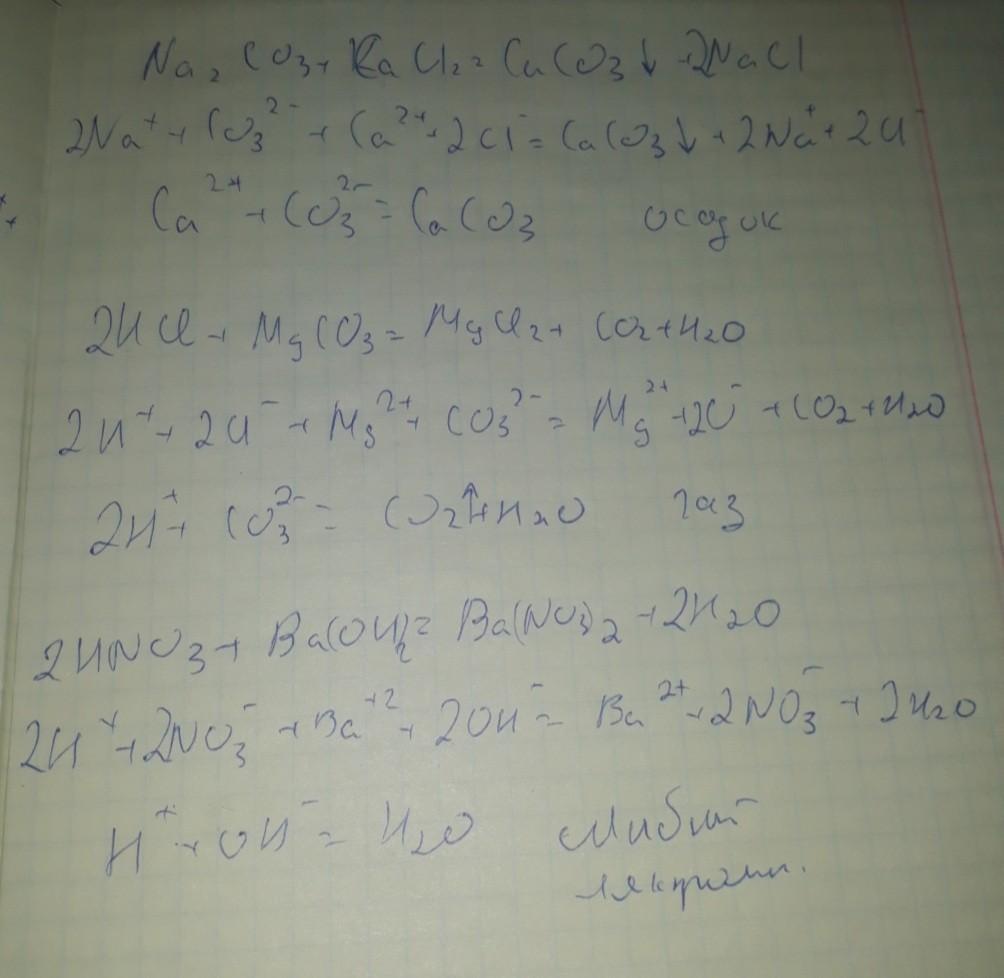 Na₂CO₃ + CaCl₂ = CaCO₃↓ + 2NaCl
2Na⁺ + CO₃²⁻ + Ca²⁺ + 2Cl⁻ = CaCO₃↓ + 2Na⁺ + 2Cl⁻
Ca²⁺ + CO₃²⁻ = CaCO₃ осадок
2HCl + MgCO₃ = MgCl₂ + CO₂ + H₂O
2H⁺ + 2Cl⁻ + Mg²⁺ + CO₃²⁻ = Mg²⁺ + 2Cl⁻ + CO₂ + H₂O
2H⁺ + CO₃²⁻ = CO₂↑ + H₂O газ
2HNO₃ + Ba(OH)₂ = Ba(NO₃)₂ + 2H₂O
2H⁺ + 2NO₃⁻ + Ba⁺² + 2OH⁻ = Ba²⁺ + 2NO₃⁻ + 2H₂O
H⁺ + OH⁻ = H₂O